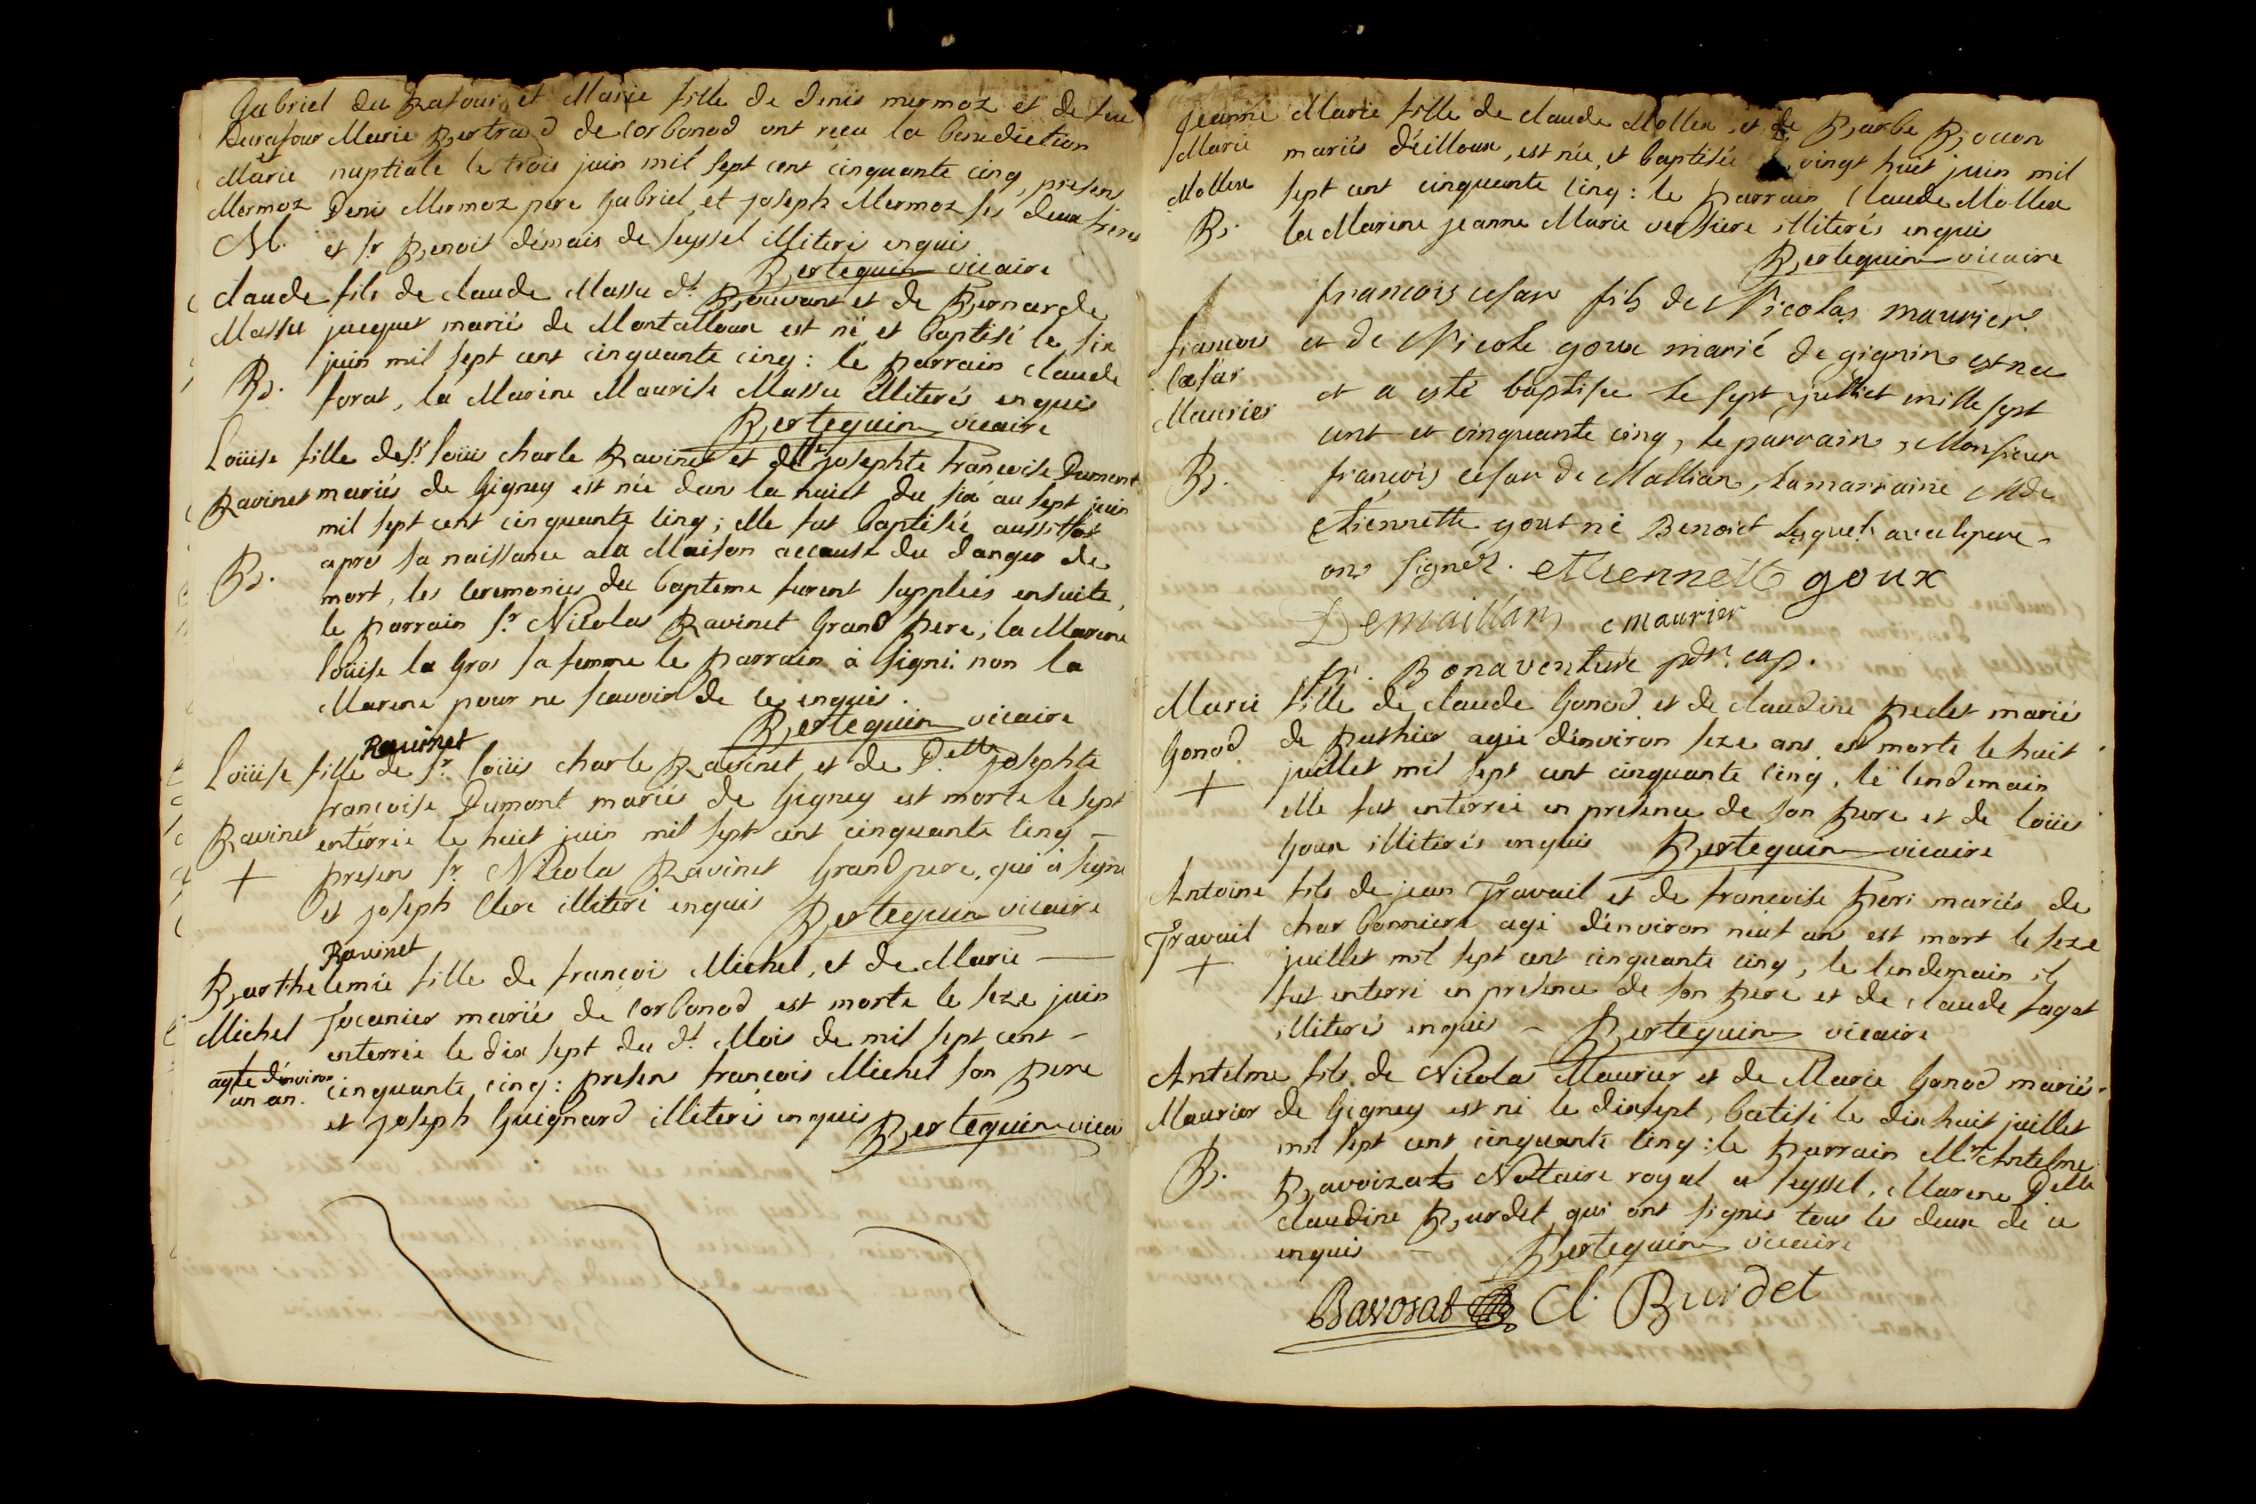 Gabriel du Rafour et Marie fille de denis mermoz et de feu
Durafour Marie Bertrand de Corbonod ont recu la benediction
Marie nuptiale le trois juin mil sept cent cinquante cinq, presens
Mermoz Denis Mermoz pere Gabriel et joseph Mermoz ses deux freres
M. et sr. Benoit démais de seyssel illiterés enquis
Bertequin vicaire
claude fils de claude Massu dt. Bouvant et de Bernarde
Massu jacquet mariés de Montalloux est né et baptisé le six
juin mil sept cent cinquante cinq: le parrain claude
B. forat, la Marine Maurise Massu illiterés enquis
Bertequin vicaire
Loüise fille de sr. loüis charle Ravinet et de dlle josephte francoise Dumont
Ravinet mariés de Gigney est née dans la nuict du six au sept juin
mil sept cent cinquante cinq; elle fut baptisée aussittot
apres sa naissance a la Maison accause du danger de
B. mort, les ceremonies du bapteme furent suppleés ensuite,
le parrain sr. Nicolas Ravinet Grand Pere, la Marene
loüise la Gros sa femme le parrain à signé non la
Marene pour ne scavoir de ce enquis.
Bertequin vicaire
Ravinet
Loüise fille de sr. loüis charle Ravinet et de Dette josephte
francoise Dumont mariés de Gigney est morte le sept
Ravinet enterrée le huit juin mil sept cent cinquante cinq –
+ presens sr. Nicolas Ravinet Grand pere, qui à signé
et joseph Clerc illiteré enquis Bertequin vicaire
Ravinet
Barthelemie fille de françoi Michel, et de Marie —
Michel Jocanier mariés de Corbonod est morte le seze juin
enterrée le dix sept du dt. Mois de mil sept cent –
agée d'environ cinquante cinq: presens francois Michel son pere
un an. et joseph Guignard illiterés enquis Bertequin vicai
Jeanne Marie fille de claude Mollex, et de Barbe Bovon
Marie mariés d'eilloux, est née, et baptisée le vingt huit juin mil
Mollex sept cent cinquante cinq: le parrain Claude Mollex
B. la Marine jeanne Marie versiere illiterés enquis
Bertequin vicaire
francois cesar fils de Nicolas maurier
francois et de Nicole goux marié de gignin est né
Cæsar et a esté baptisee le sept julliet mille sept
Maurier cent et cinquante cinq, le parrain, Monsieur
B. françois cesar de Mallian, la marraine Mde
etiennette gout né Benoict lesquels avec le pere
ons signéz. ettiennette goux
Demaillans maurier
fr. Bonaventure pdr. cap.
Marie fille de claude Gonod et de claudine pedet mariés
Gonod de Puthier agée d'environ seze ans est morte le huit
+ juillet mil sept cent cinquante cinq, le lendemain
elle fut enterrée en presence de son pere et de loüis
Goux illiterés enquis Bertequin vicaire
Antoine fils de jean Travail et de francoise peri mariés de
Travail charbonniere agé d'environ neuf ans est mort le seze
+ juillet mil sept cent cinquante cinq, le lendemain il
fut enterré en présence de son pere et de claude fagot
illiterés enquis – Bertequin vicaire
Antelme fils de Nicolas Maurier et de Marie Gonod mariés
Maurier de Gigney est né le dixsept, batisé le dix huit juillet
mil sept cent cinquante cinq: le parrain Mre Antelme
B. Bavoizat Nottaire royal a seyssel, Marene Delle
claudine Burdet qui ont signés tous les deux de ce
enquis – Bertequin vicaire
Bavosat Cl. Burdet